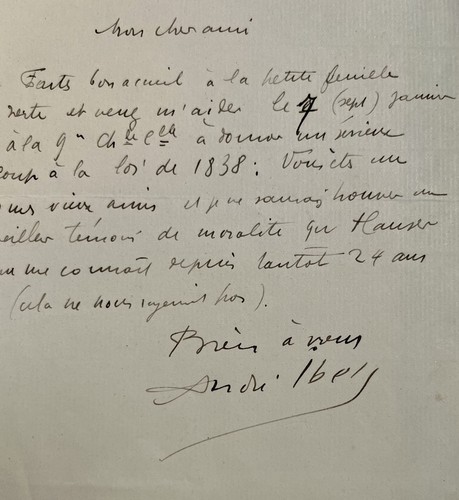 Mon cher ami
Faits bon accueil à la petite feuille
verte et venez m'aider le 7 (sept) janvier
à la 9e Ch bre Celle à donner un sérieux
coup à la loi de 1838 : Vous êtes un
vieux amis et je ne saurais trouver un
meilleur témoin de moralité qu' Hauser
me connaît depuis tantôt 24 ans
(cela ne nous rajeunit pas).
Bien à vous
André Ibels